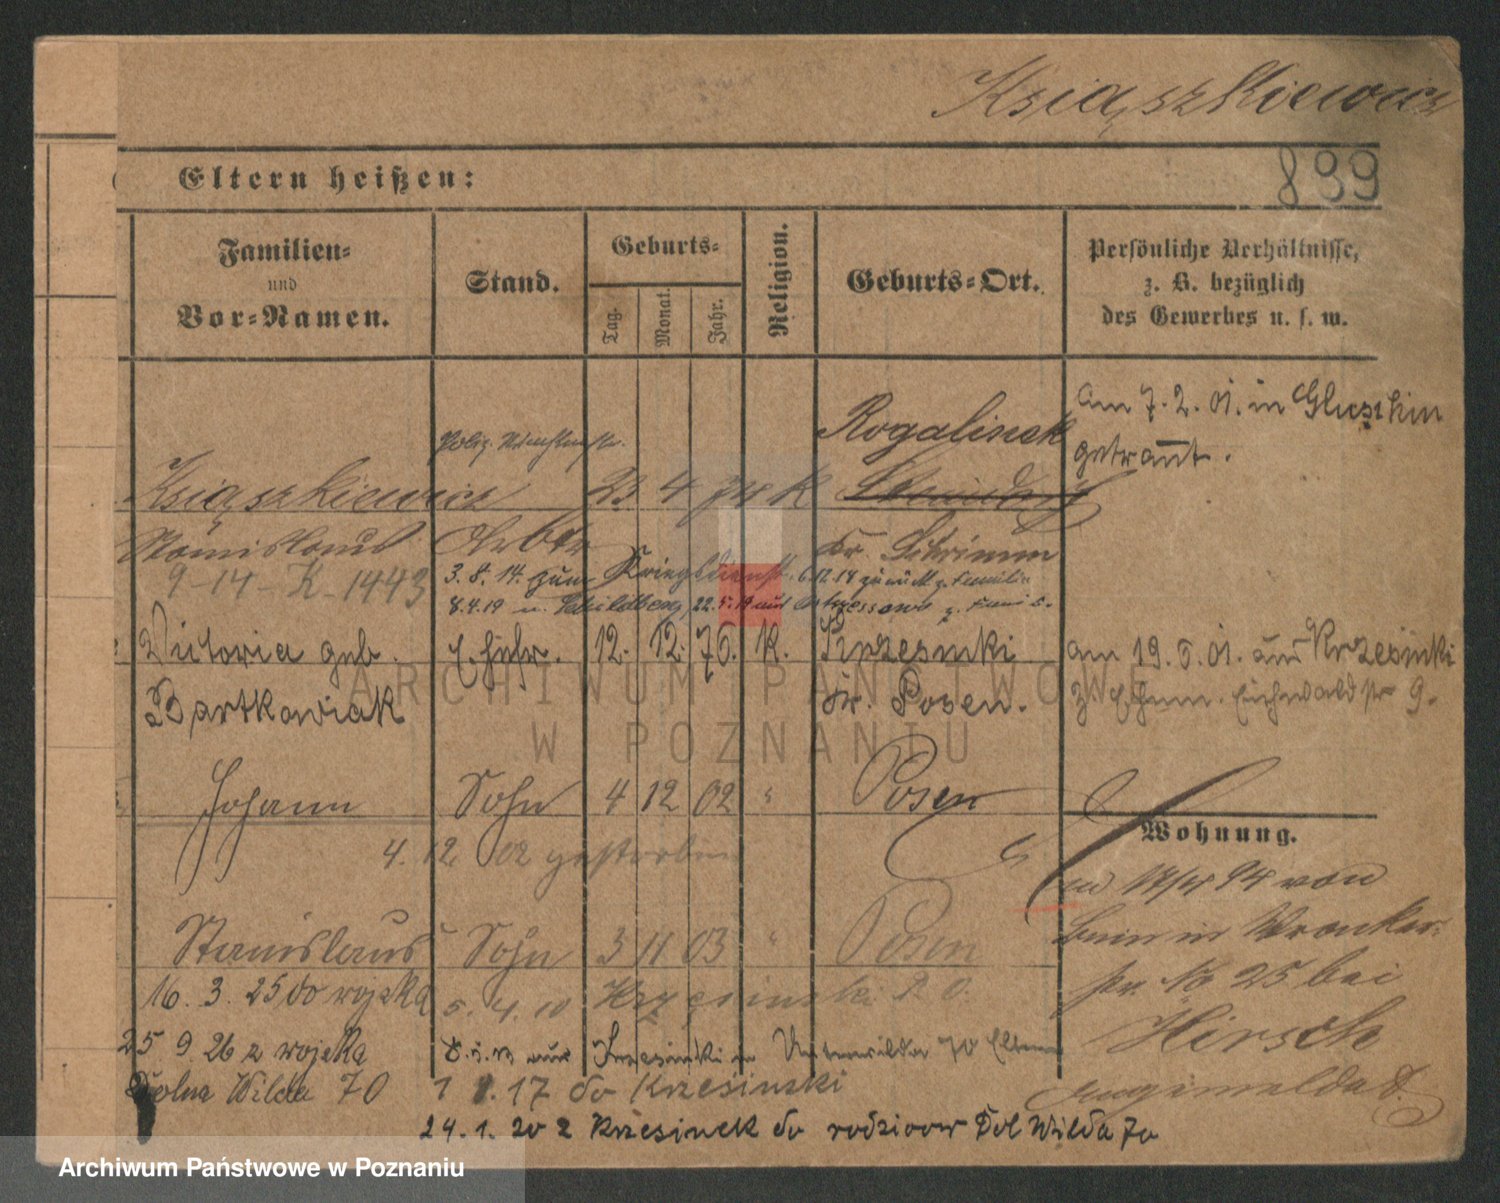 Książkiewicz
899
Eltern heißen:
Familien=
und
Vor=Namen.
Stand.
Geburts=
Tag.
Monat.
Jahr.
Religion.
Geburts=Ort.
Persönliche Verhältnisse,
z. B. bezüglich
des Gewerbes u. s. w.
am 7. 2. 01. in Gluszkin
getraut.
Rogalinek
Książkiewicz 23 4 74 K
Stanislaus Arbtr Kr. Schrimm
9-14-K-1443
3. 8. 14. zum Kriegsdienst. 6.12.14 zurück z. Familie
8.4.19 n. Schildberg, 22.5.19 aus z.
Victoria geb. Ehefr. 12. 12. 76. K. Krzesinki am 19. 5. 01. aus Krzesinki
Bartkowiak Kr. Posen. z. Ehem. Eichwaldstr 9.
Johann Sohn 4 12 02 " Posen
4. 12 02 gestorben
Wohnung.
17/4 94 von
in Wronker-
str. No 25 bei
Hirsch
Stanislaus Sohn 3 11 03 " Posen
16. 3. 25 do wojska 5. 4. 10 Krzesinki P. O.
25 9. 26 z wojska aus Krzesinki n Unterwilda 70 Eltern
Dolna Wilda 70 1 8. 17 do Krzesinski
24. 1. 20 z Krzesinek do rodziców Dol Wilda 70
ARCHIWUM PAŃSTWOWE
W POZNANIU
Archiwum Państwowe w Poznaniu